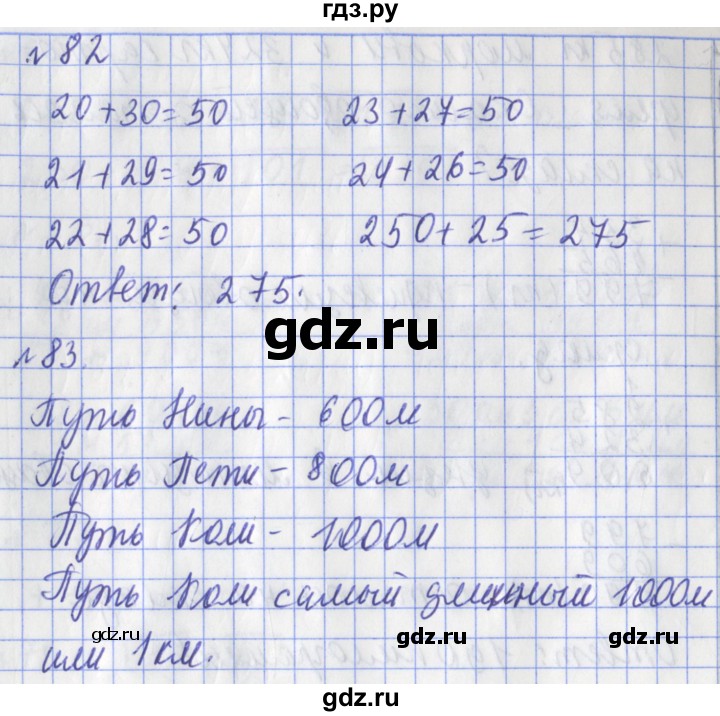 гдз.ру
№ 82
20+30=50 23+27=50
21+29=50 24+26=50
22+28=50 250+25=275
Ответ: 275.
gdz.ru
№ 83.
Путь Нины - 600м
Путь Пети - 800м
Путь Коли - 1000м
Путь Коли самый длинный 1000м
gdz.ru gdz.ru
или 1 км.
gdz.ru